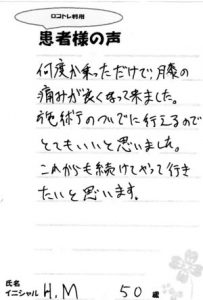 ロコトレ利用
患者様の声
何度か乗っただけで、膝の
痛みが良くなって来ました。
施術のついでに行えるので
とてもいいと思いました。
これからも続けてやって行き
たいと思います。
氏名
イニシャル H.M 50 歳